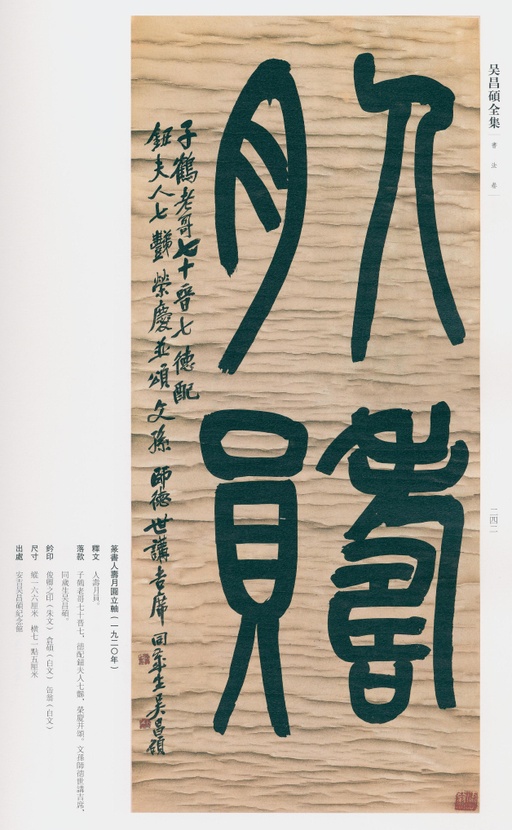 吴昌碩全集
書法卷
二四二
人壽
月員
子鶴老哥七十晉七德配
鈕夫人七䴡榮慶並頌文孫師德世講吉席同歲生吴昌碩
篆書人壽月圓立軸(一九二〇年)
釋文 人壽月員。
落款 子鶴老哥七十晉七,德配鈕夫人七䴡,榮慶并頌,文孫師德世講吉席,
同歲生吴昌碩。
鈐印 俊卿之印(朱文) 倉碩(白文) 缶翁(白文)
尺寸 縱一六六厘米 横七一點五厘米
出處 安吉吴昌碩紀念館